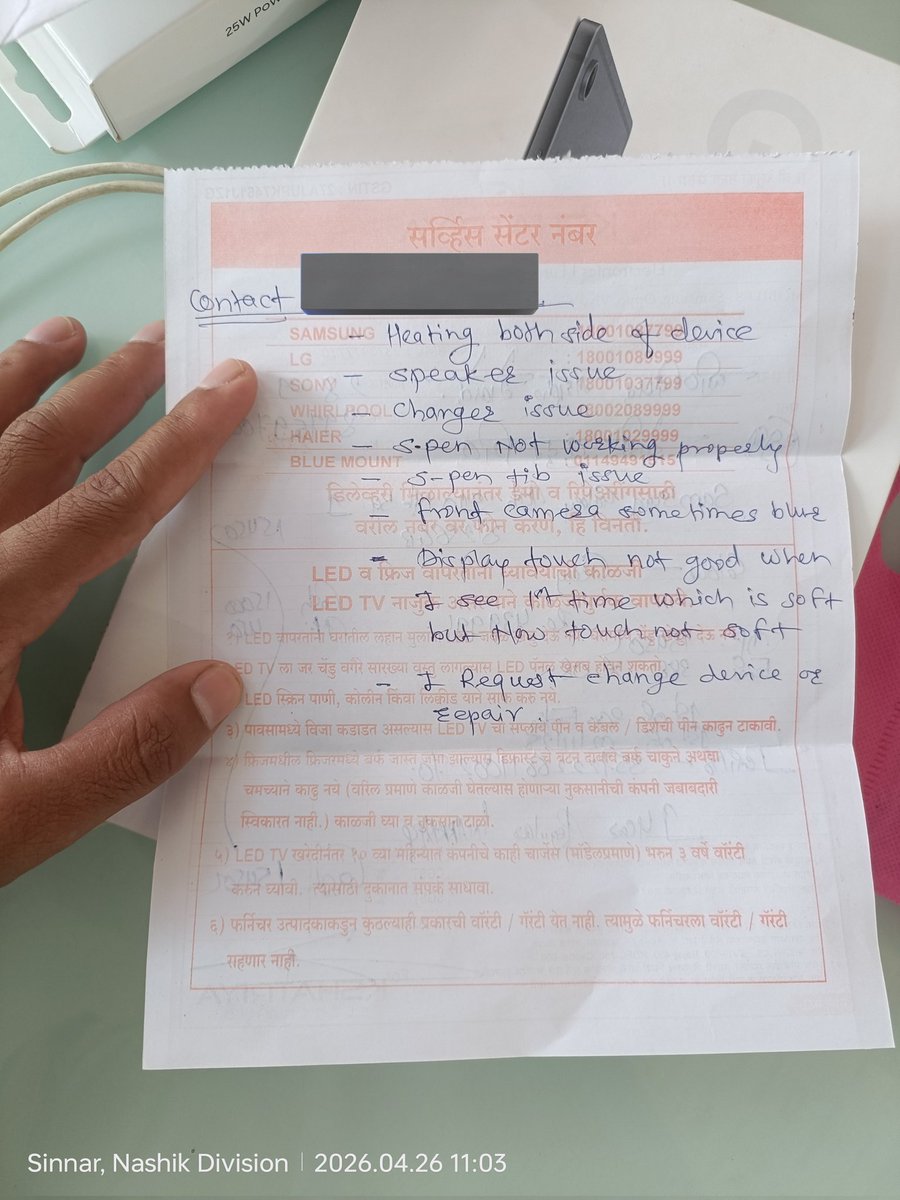 25W POW
सर्व्हिस सेंटर नंबर
Contact
SAMSUNG
- Heating both side of device
LG : 18001089999
- speaker issue
SONY : 18001037799
WHIRLPOOL
- Charger issue
HAIER : 18001029999
- S-pen Not working properly
BLUE MOUNT
- S-pen tib issue
- front camera sometimes blur
वरील नंबर वर फोन करणे, हि विनंती.
- Display touch not good when
LED व फ्रिज वापरतांना घ्यावयाची काळजी
I see 1st time which is soft
LED TV
but Now touch not soft
ED TV ला जर चेंडू वगैरे सारख्या वस्तु लागल्यास LED पॅनल खराब होवुन शकतो.
- I Request change device or
LED स्क्रिन पाणी, कोलीन किंवा लिक्वीड याने साफ करु नये.
repair.
३) पावसामध्ये विजा कडाडत असल्यास LED TV चा सप्लाय पीन व केबल / डिशेची पीन काढुन टाकावी.
चमच्याने काढु नये (वरिल प्रमाणे काळजी घेतल्यास होणाऱ्या नुकसानीची कंपनी जबाबदारी
स्विकारत नाही.) काळजी घ्या व नुकसान टाळो.
५) LED TV खरेदीनंतर १० व्या महिन्यात कंपनीचे काही चार्जेस (मॉडेलप्रमाणे) भरुन ३ वर्षे वॉरंटी
करुन घ्यावी. त्यासाठी दुकानात संपर्क साधावा.
६) फर्निचर उत्पादकाकडुन कुठल्याही प्रकारची वॉरंटी / गॅरंटी येत नाही. त्यामुळे फर्निचरला वॉरंटी / गॅरंटी
राहणार नाही.
Sinnar, Nashik Division | 2026.04.26 11:03